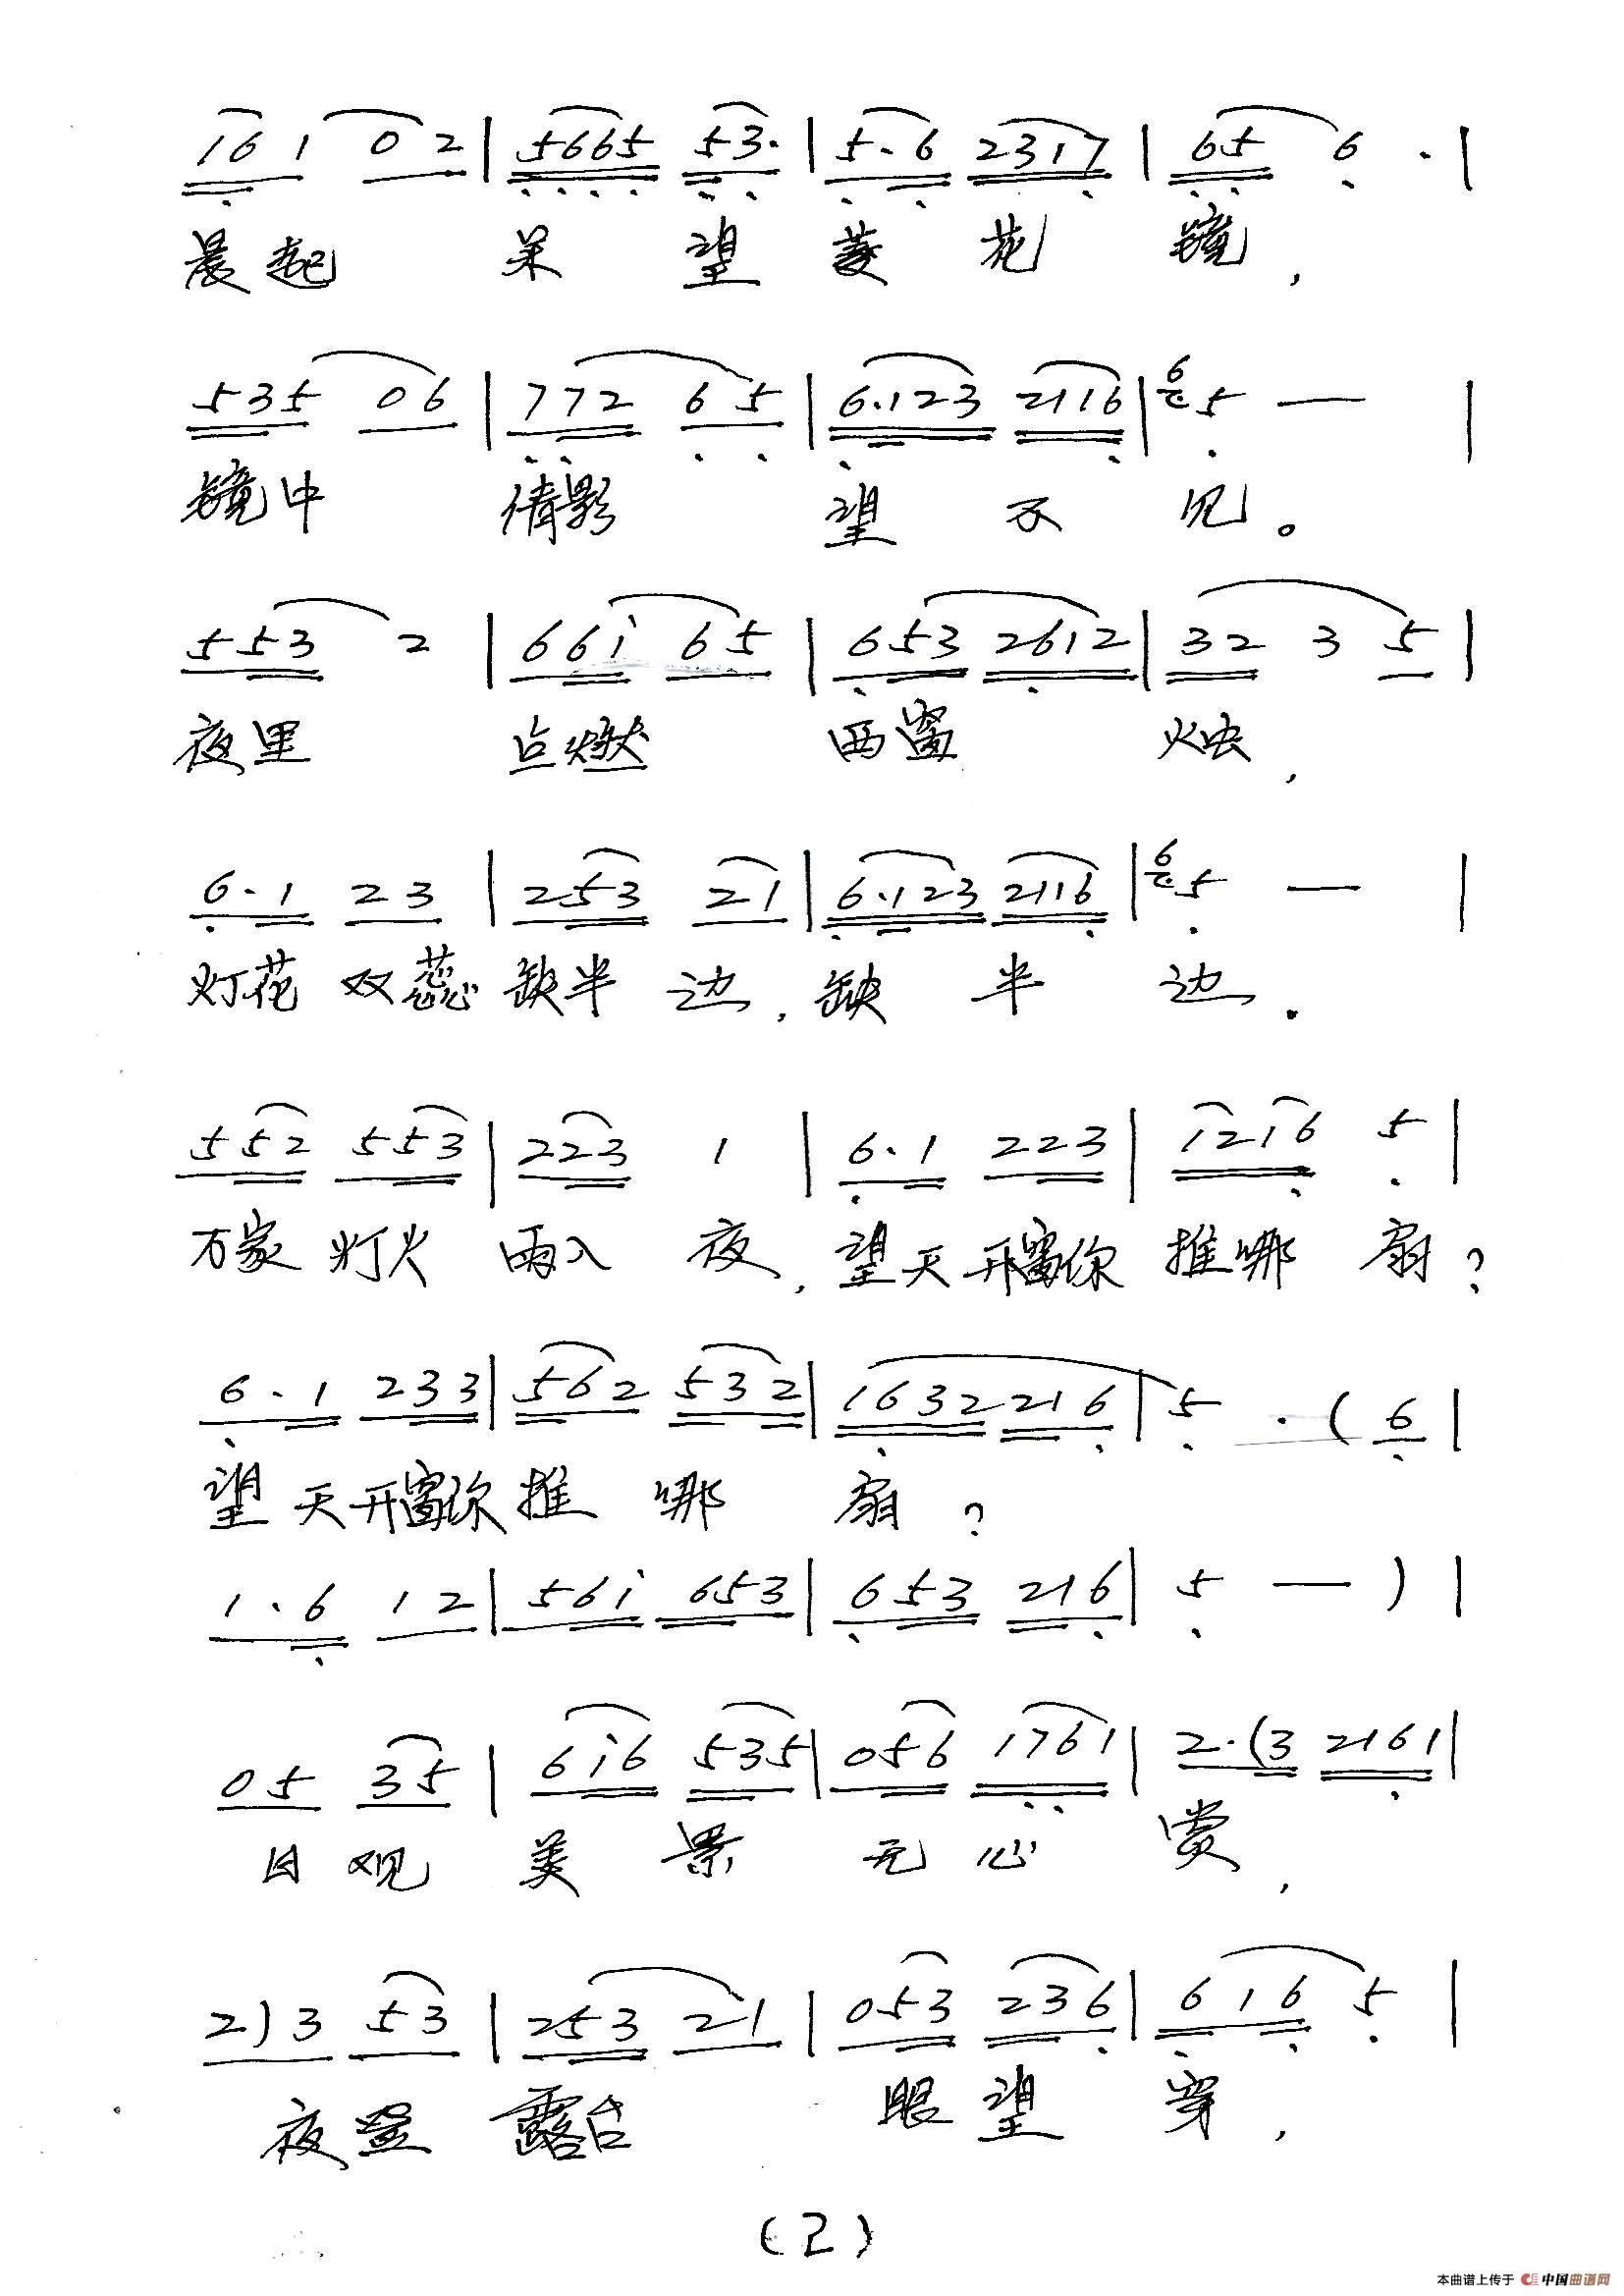 161 02 | 5665 53. | 5.6 2317 | 65 6 . |
晨起 呆 望 菱 花 镜，
535 06 | 772 65 | 6.123 2116 | 6 5 — |
镜中 倩影 望 不 见。
553 2 | 66i 65 | 653 2612 | 32 3 5 |
夜里 点燃 西窗 烛，
6.1 23 | 253 21 | 6.123 2116 | 6 5 — |
灯花 双蕊 缺半 边，缺 半 边．
552 553 | 223 1 | 6.1 223 | 1216 5 |
万家 灯火 雨入 夜，望天开窗你 推哪 扇？
6.1 233 | 562 532 | 1632 216 | 5 . ( 6 |
望天开窗你 推 哪 扇？
1.6 12 | 56i 653 | 653 216 | 5 — ) |
05 35 | 6i6 535 | 056 1761 | 2.(3 2161 |
日 观 美 景 无 心 赏，
2)3 53 | 253 21 | 053 236 | 616 5 |
夜登 露台 眼 望 穿，
(2)
本曲谱上传于 中国曲谱网